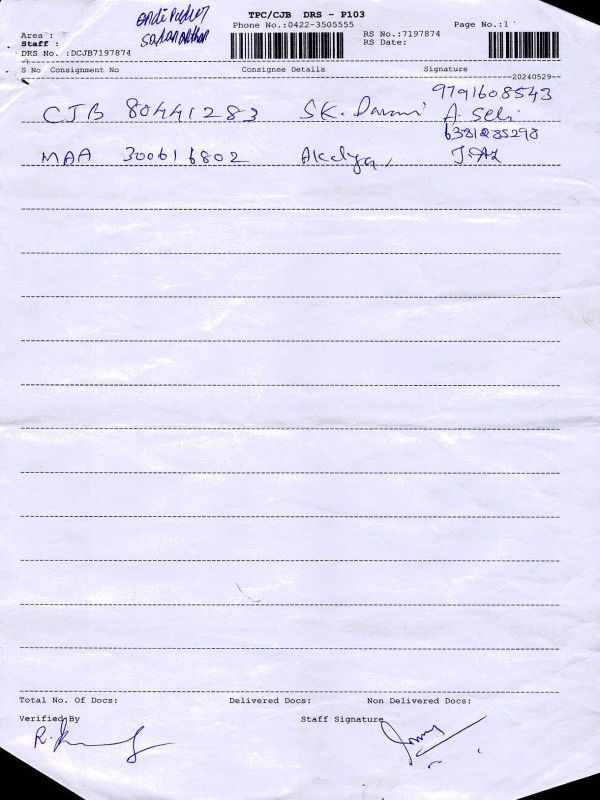 TPC/CJB DRS - P103
Phone No.:0422-3505555
Page No.:1
Area :
Staff :
RS No.:7197874
RS Date:
DRS No. :DCJB7197874
S No Consignment No Consignee Details Signature
20240529
9791608543
CJB 80441283 SK. Darani A. Selvi
6381235298
MAA 300616802 Akalya,
Total No. Of Docs: Delivered Docs: Non Delivered Docs:
Verified By Staff Signature